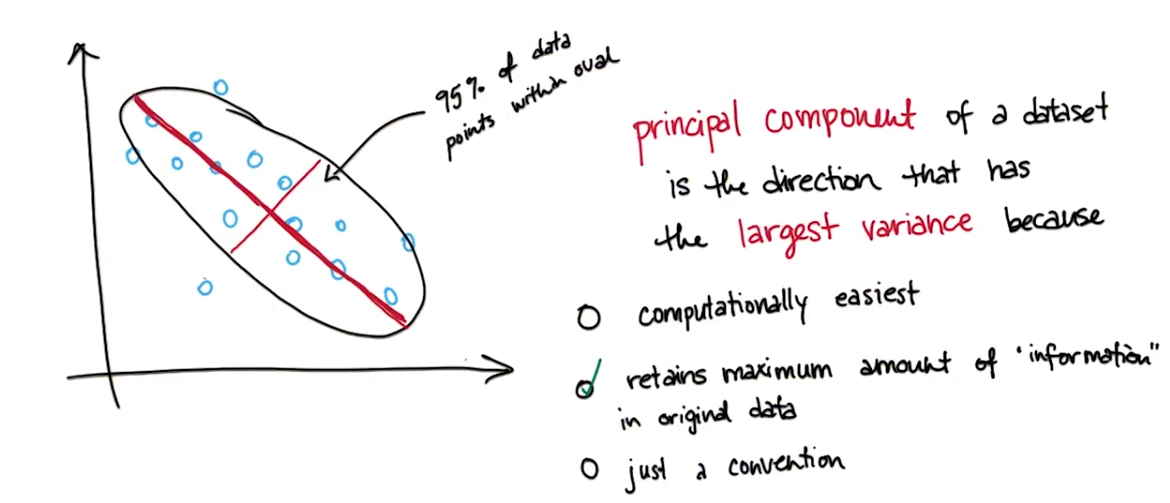 95% of data
points within oval
principal component of a dataset
is the direction that has
the largest variance because
computationally easiest
retains maximum amount of "information"
in original data
just a convention